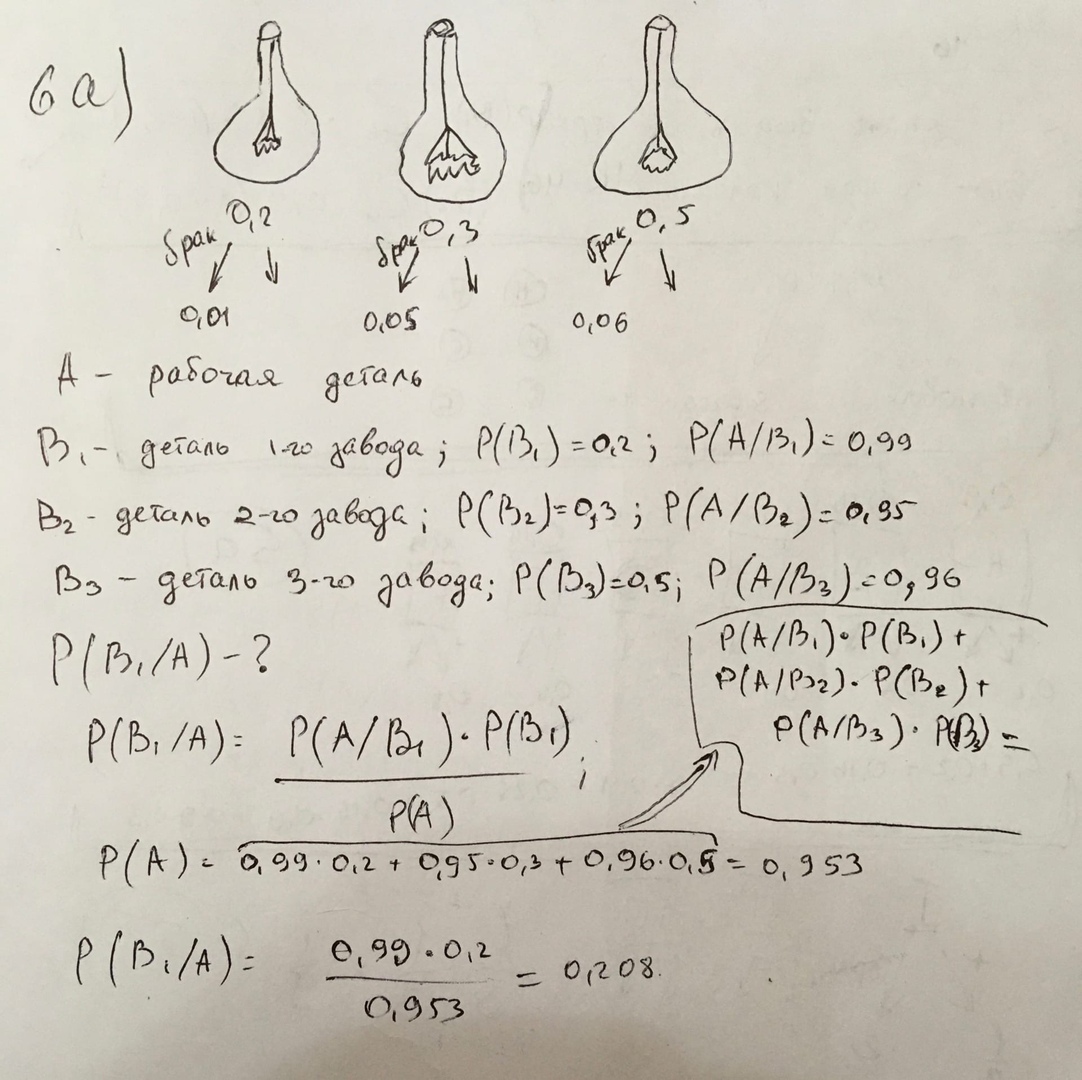 6 а)
0,2 0,3 0,5
брак брак брак
0,01 0,05 0,06
А - рабочая деталь
B₁ - деталь 1-го завода; P(B₁)=0,2; P(A/B₁)=0,99
B₂ - деталь 2-го завода; P(B₂)=0,3; P(A/B₂)=0,95
B₃ - деталь 3-го завода; P(B₃)=0,5; P(A/B₃)=0,96
P(B₁/A) - ?
P(A/B₁)·P(B₁)+
P(A/B₂)·P(B₂)+
P(A/B₃)·P(B₃)=
P(B₁/A)= P(A/B₁)·P(B₁) ;
P(A)
P(A)= 0,99·0,2+0,95·0,3+0,96·0,5=0,953
P(B₁/A)= 0,99·0,2 = 0,208.
0,953